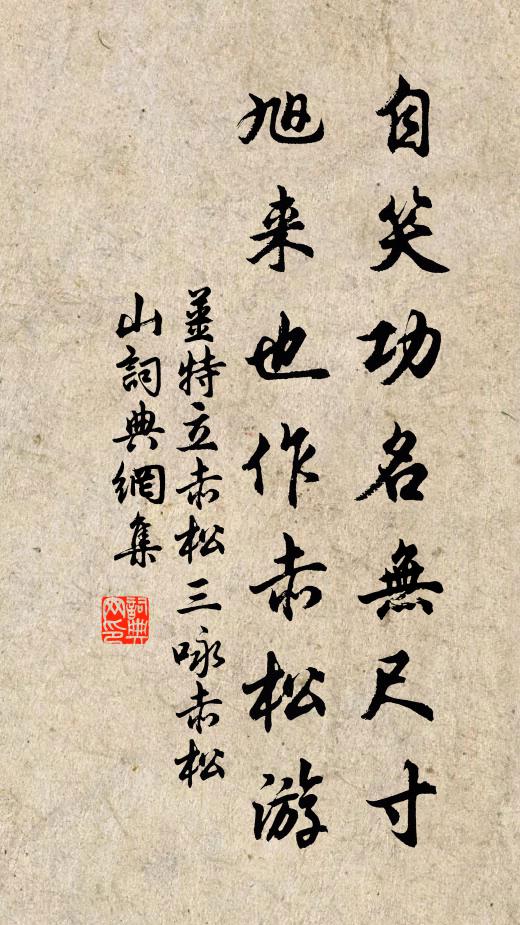 自笑功名無尺寸
旭来也作赤松游
薑特立赤松三咏赤松
山詞典網集
詞典
网印